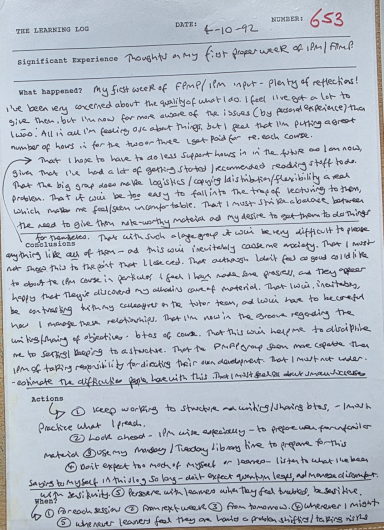 THE LEARNING LOG
DATE: 4-10-92
NUMBER: 653
Significant Experience Thoughts on my first proper week of IPM/FPMP
What happened? My first week of FPMP/IPM input - plenty of reflections!
I've been very concerned about the quality of what I do. I feel I've got a lot to
give them, but I'm now far more aware of the issues (by personal experience) than
I was. All in all I'm feeling OK about things, but I feel that I'm putting a great
number of hours in for the two or three I get paid for re. each course.
That I hope to have to do less support hours in the future as I am now,
given that I've had a lot of getting started/recommended reading stuff to do.
That the big group does make logistics/copying/distribution/flexibility a real
problem. That it will be too easy to fall into the trap of lecturing to them,
which makes me feel/seem uncomfortable. That I must strike a balance between
the need to give them note-worthy material and my desire to get them to do things
for themselves. That with such a large group it will be very difficult to please
Conclusions
anything like all of them - and this will inevitably cause me anxiety. That I must
not push this to the point that I lose out. That although I don't feel as good as I'd like
to about the IPM course in particular I feel I have made some progress, and they appear
happy that they've discovered my coverage of material. That I will, inevitably,
be contrasting with my colleagues on the tutor team, and will have to be careful
how I manage these relationships. That I'm now in the groove regarding the
writing/sharing of objectives - btos of course. That this will help me to discipline
me to keeping to a structure. That the FPMP group seem more capable than
IPM of taking responsibility for directing their own development. That I must not under-
-estimate the difficulties people have with this. That I must share about small successes
Actions
① Keep working to structure and writing/sharing btos, - I must
practice what I preach.
② Look ahead - IPM wise especially - to prepare
material ③ Use my Monday/Tuesday library time to prepare for this
④ Don't expect too much of myself or learners - listen to what I've been
saying to myself in this log so long - don't expect quantum leaps, and manage discomfort
with sensitivity ⑤ Persevere with learners when they feel troubled, be sensitive.
When?
① For each session ② From next week ③ From tomorrow. ④ Whenever I might
⑤ whenever learners feel they are having a problem shifting/taking risks